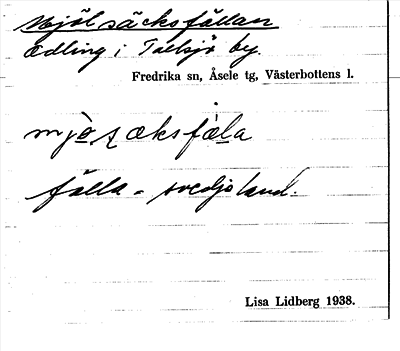 Mjölsäcksfällan
Ödling i Tallsjö by.
Fredrika sn, Åsele tg, Västerbottens l.
mjö̱ʂæksfä̀la
fälla = svedjeland.
Lisa Lidberg 1938.